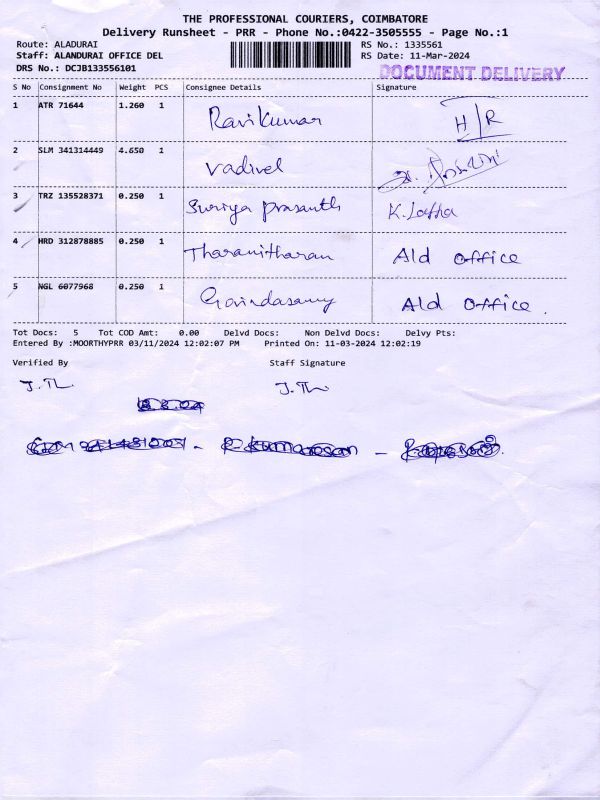 THE PROFESSIONAL COURIERS, COIMBATORE
Delivery Runsheet - PRR - Phone No.:0422-3505555 - Page No.:1
Route: ALADURAI RS No.: 1335561
Staff: ALANDURAI OFFICE DEL RS Date: 11-Mar-2024
DRS No.: DCJB133556101 DOCUMENT DELIVERY
S No Consignment No Weight PCS Consignee Details Signature
1 ATR 71644 1.260 1 Ravikumar H/R
2 SLM 341314449 4.650 1 Vadivel
3 TRZ 135528371 0.250 1 Suriya prasanth K. Latha
4 HRD 312878885 0.250 1 Tharanitharan Ald office
5 NGL 6077968 0.250 1 Govindasamy Ald office.
Tot Docs: 5 Tot COD Amt: 0.00 Delvd Docs: Non Delvd Docs: Delvy Pts:
Entered By :MOORTHYPRR 03/11/2024 12:02:07 PM Printed On: 11-03-2024 12:02:19
Verified By Staff Signature